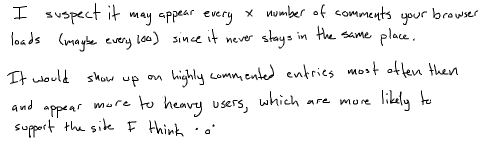 I suspect it may appear every x number of comments your browser
loads (maybe every 100) since it never stays in the same place.
It would show up on highly commented entries most often then
and appear more to heavy users, which are more likely to
support the site I think